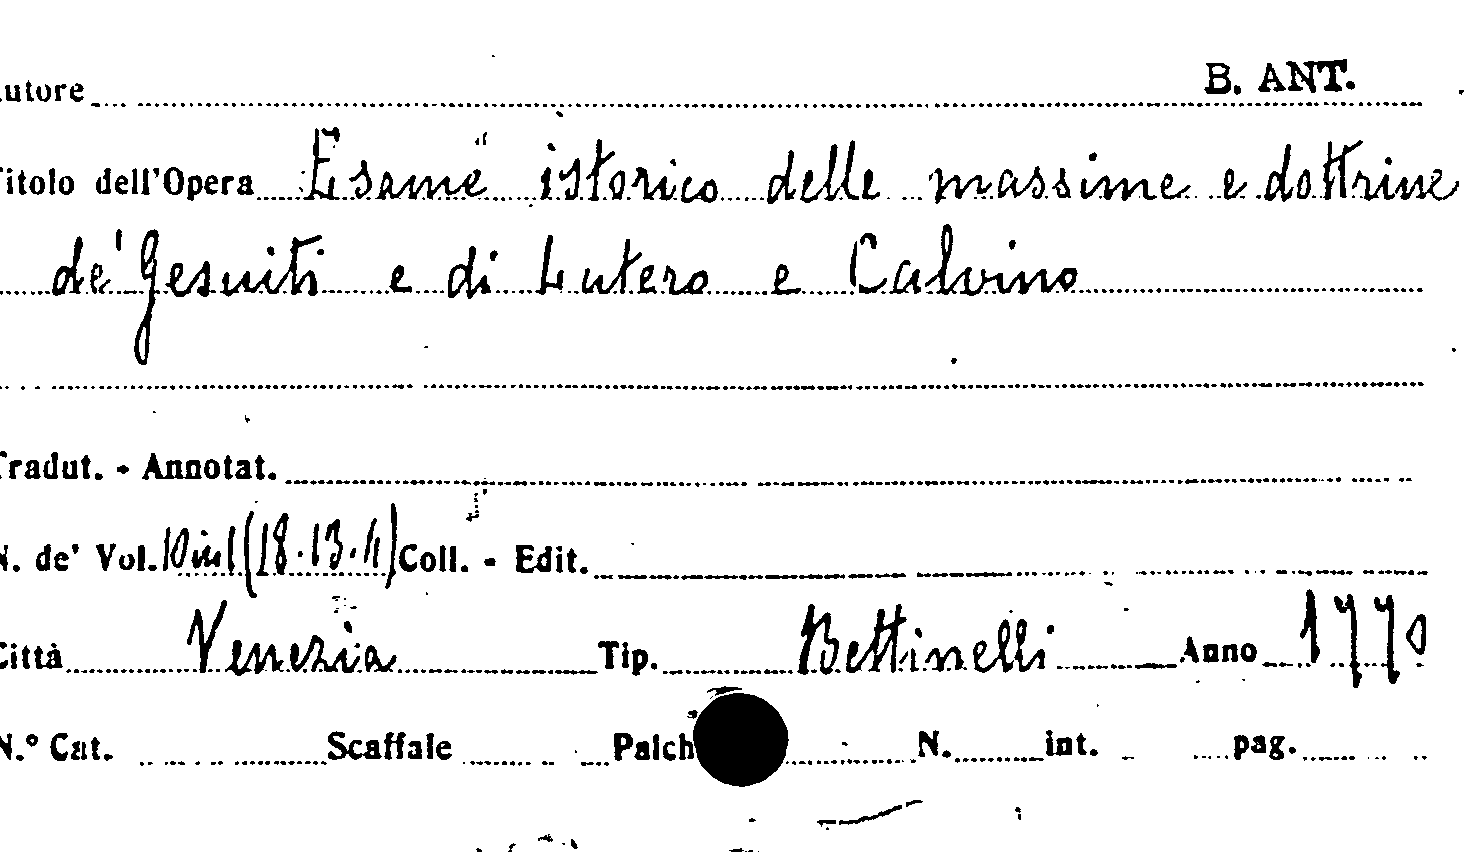 Autore B. ANT.
Titolo dell'Opera Esame istorico delle massime e dottrine
de' Gesuiti e di Lutero e Calvino
Tradut. - Annotat.
N. de' Vol. (18.13.4) Coll. - Edit.
Città Venezia Tip. Bettinelli Anno 1770
N.º Cat. Scaffale Palch N. int. pag.